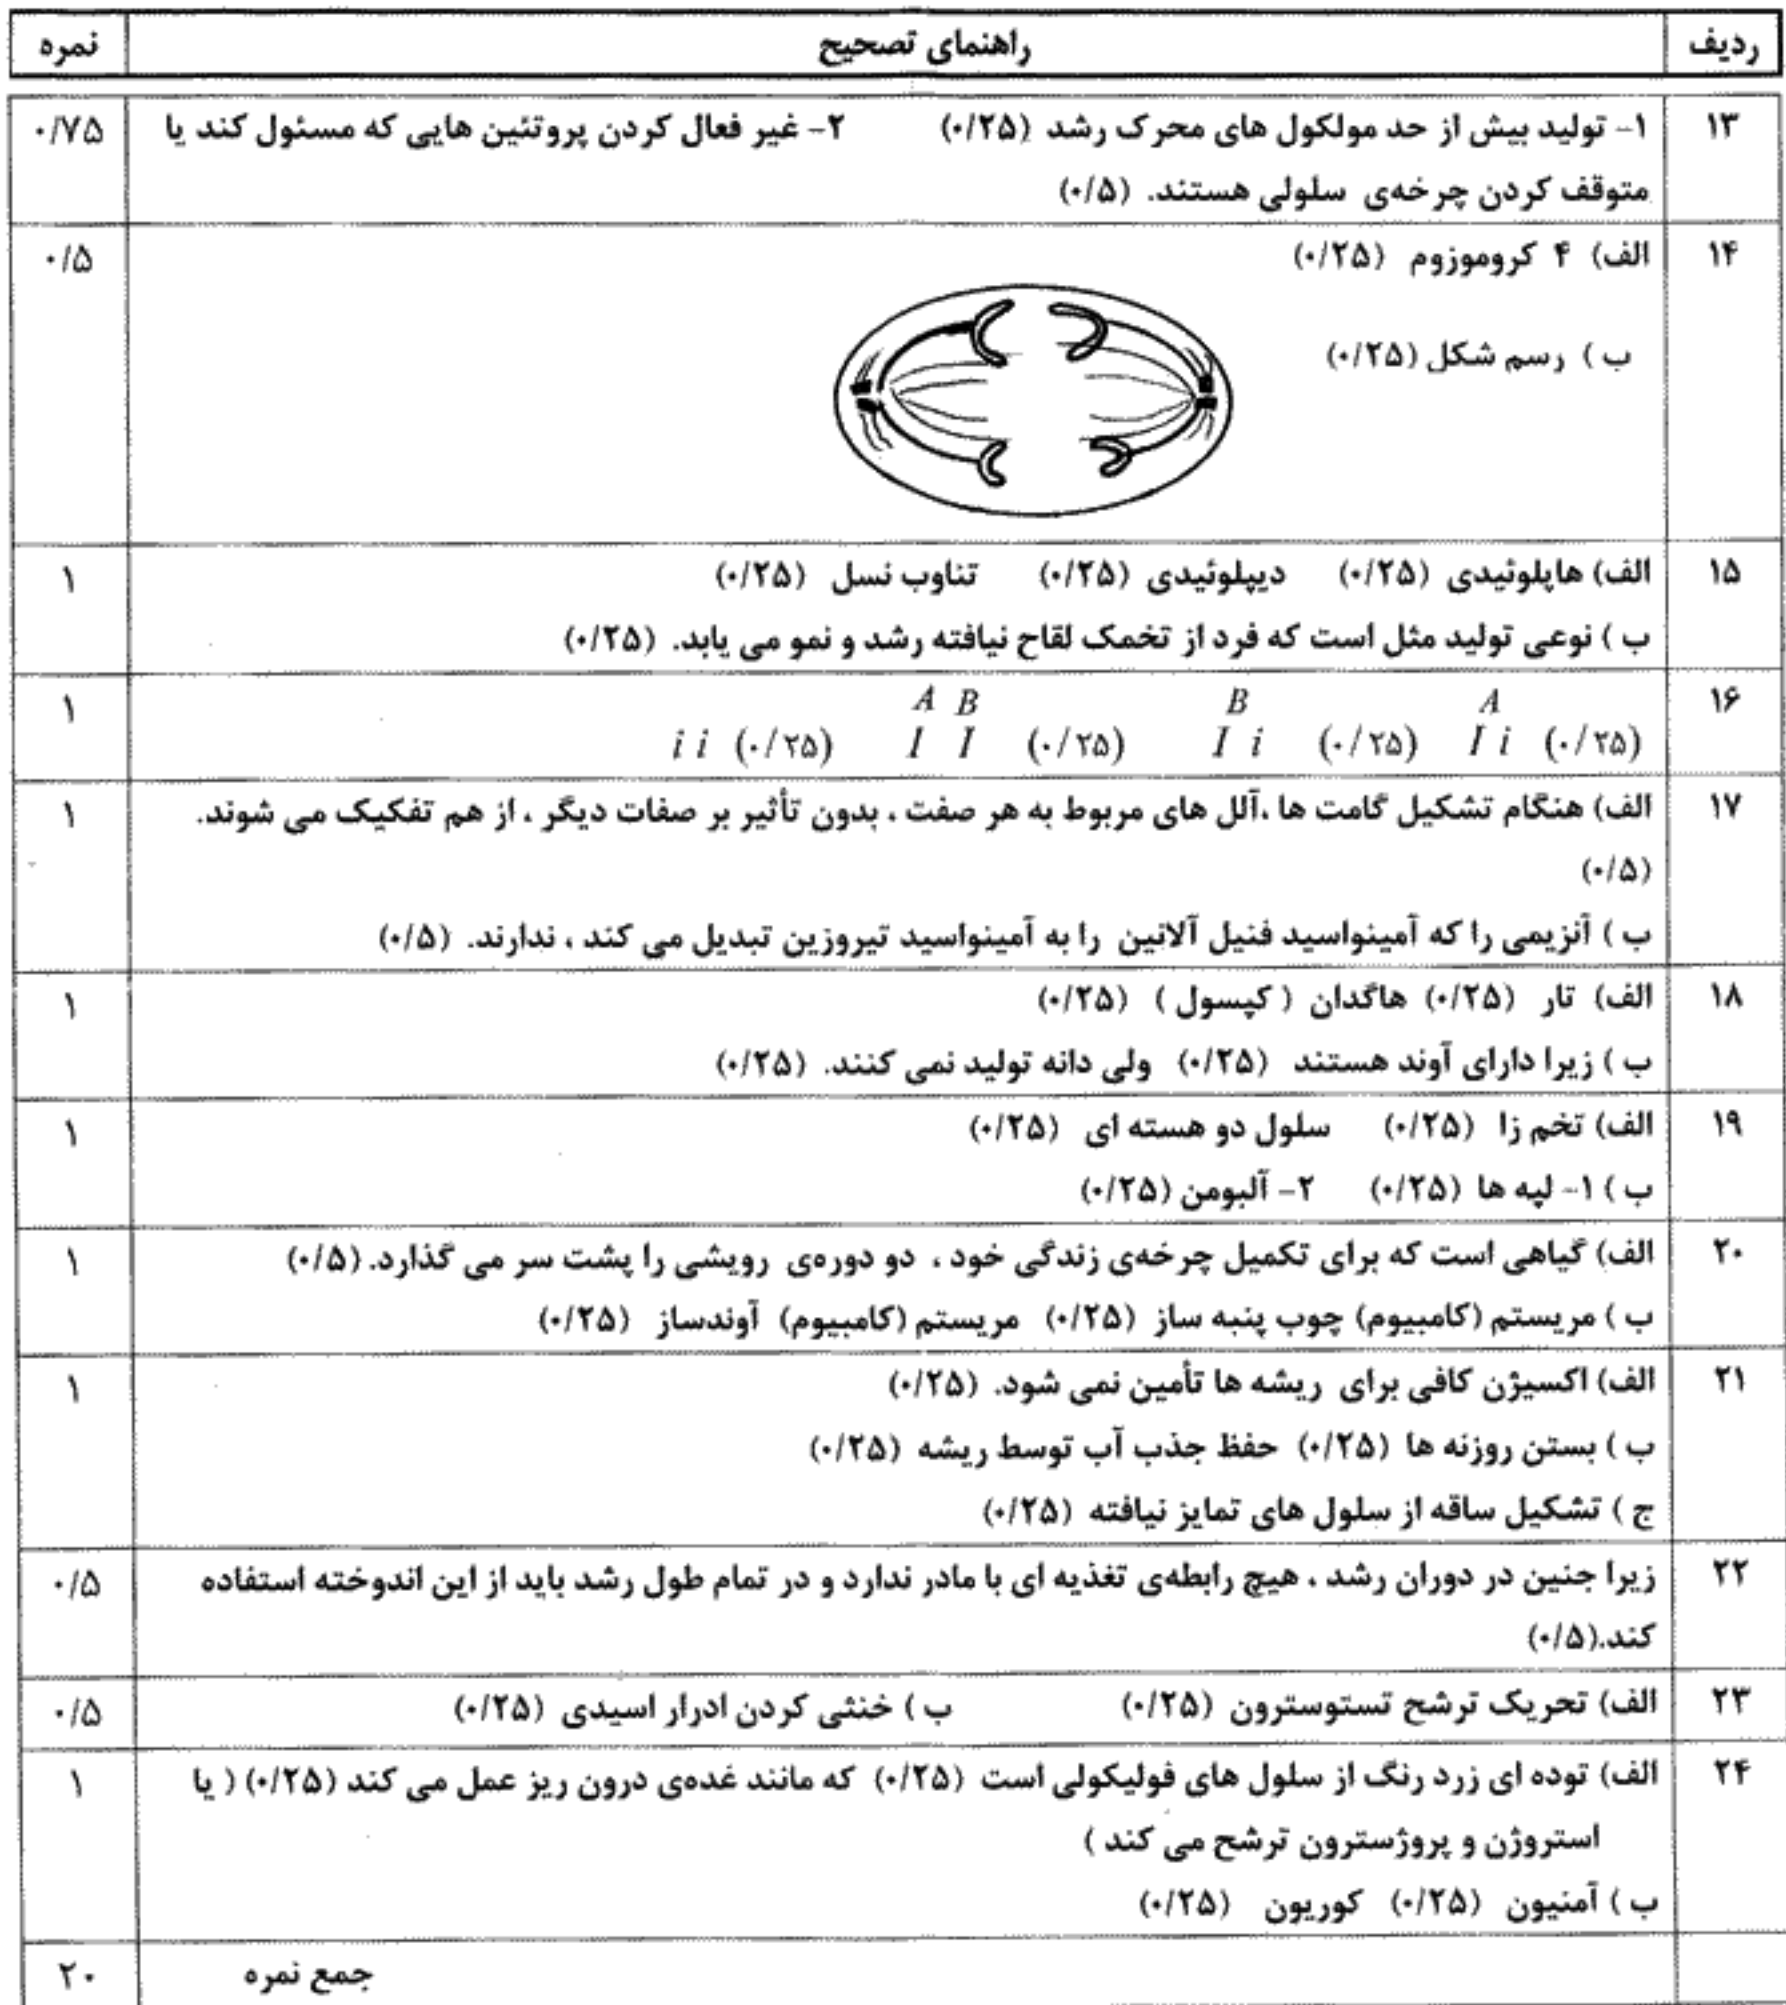 ردیف راهنمای تصحیح نمره
۱۳ ۱- تولید بیش از حد مولکول های محرک رشد (۰/۲۵) ۲- غیر فعال کردن پروتئین هایی که مسئول کند یا ۰/۷۵
متوقف کردن چرخه‌ی سلولی هستند. (۰/۵)
۱۴ الف) ۴ کروموزوم (۰/۲۵) ۰/۵
ب ) رسم شکل (۰/۲۵)
۱۵ الف) هاپلوئیدی (۰/۲۵) دیپلوئیدی (۰/۲۵) تناوب نسل (۰/۲۵) ۱
ب ) نوعی تولید مثل است که فرد از تخمک لقاح نیافته رشد و نمو می یابد. (۰/۲۵)
۱۶ A B A B ۱
I i (۰/۲۵) I i (۰/۲۵) I I (۰/۲۵) i i (۰/۲۵)
۱۷ الف) هنگام تشکیل گامت ها ،آلل های مربوط به هر صفت ، بدون تأثیر بر صفات دیگر ، از هم تفکیک می شوند. ۱
(۰/۵)
ب ) آنزیمی را که آمینواسید فنیل آلانین را به آمینواسید تیروزین تبدیل می کند ، ندارند. (۰/۵)
۱۸ الف) تار (۰/۲۵) هاگدان ( کپسول ) (۰/۲۵) ۱
ب ) زیرا دارای آوند هستند (۰/۲۵) ولی دانه تولید نمی کنند. (۰/۲۵)
۱۹ الف) تخم زا (۰/۲۵) سلول دو هسته ای (۰/۲۵) ۱
ب ) ۱- لپه ها (۰/۲۵) ۲- آلبومن (۰/۲۵)
۲۰ الف) گیاهی است که برای تکمیل چرخه‌ی زندگی خود ، دو دوره‌ی رویشی را پشت سر می گذارد. (۰/۵) ۱
ب ) مریستم (کامبیوم) چوب پنبه ساز (۰/۲۵) مریستم (کامبیوم) آوندساز (۰/۲۵)
۲۱ الف) اکسیژن کافی برای ریشه ها تأمین نمی شود. (۰/۲۵) ۱
ب ) بستن روزنه ها (۰/۲۵) حفظ جذب آب توسط ریشه (۰/۲۵)
ج ) تشکیل ساقه از سلول های تمایز نیافته (۰/۲۵)
۲۲ زیرا جنین در دوران رشد ، هیچ رابطه‌ی تغذیه ای با مادر ندارد و در تمام طول رشد باید از این اندوخته استفاده ۰/۵
کند.(۰/۵)
۲۳ الف) تحریک ترشح تستوسترون (۰/۲۵) ب ) خنثی کردن ادرار اسیدی (۰/۲۵) ۰/۵
۲۴ الف) توده ای زرد رنگ از سلول های فولیکولی است (۰/۲۵) که مانند غده‌ی درون ریز عمل می کند (۰/۲۵) ( یا ۱
استروژن و پروژسترون ترشح می کند )
ب ) آمنیون (۰/۲۵) کوریون (۰/۲۵)
جمع نمره ۲۰